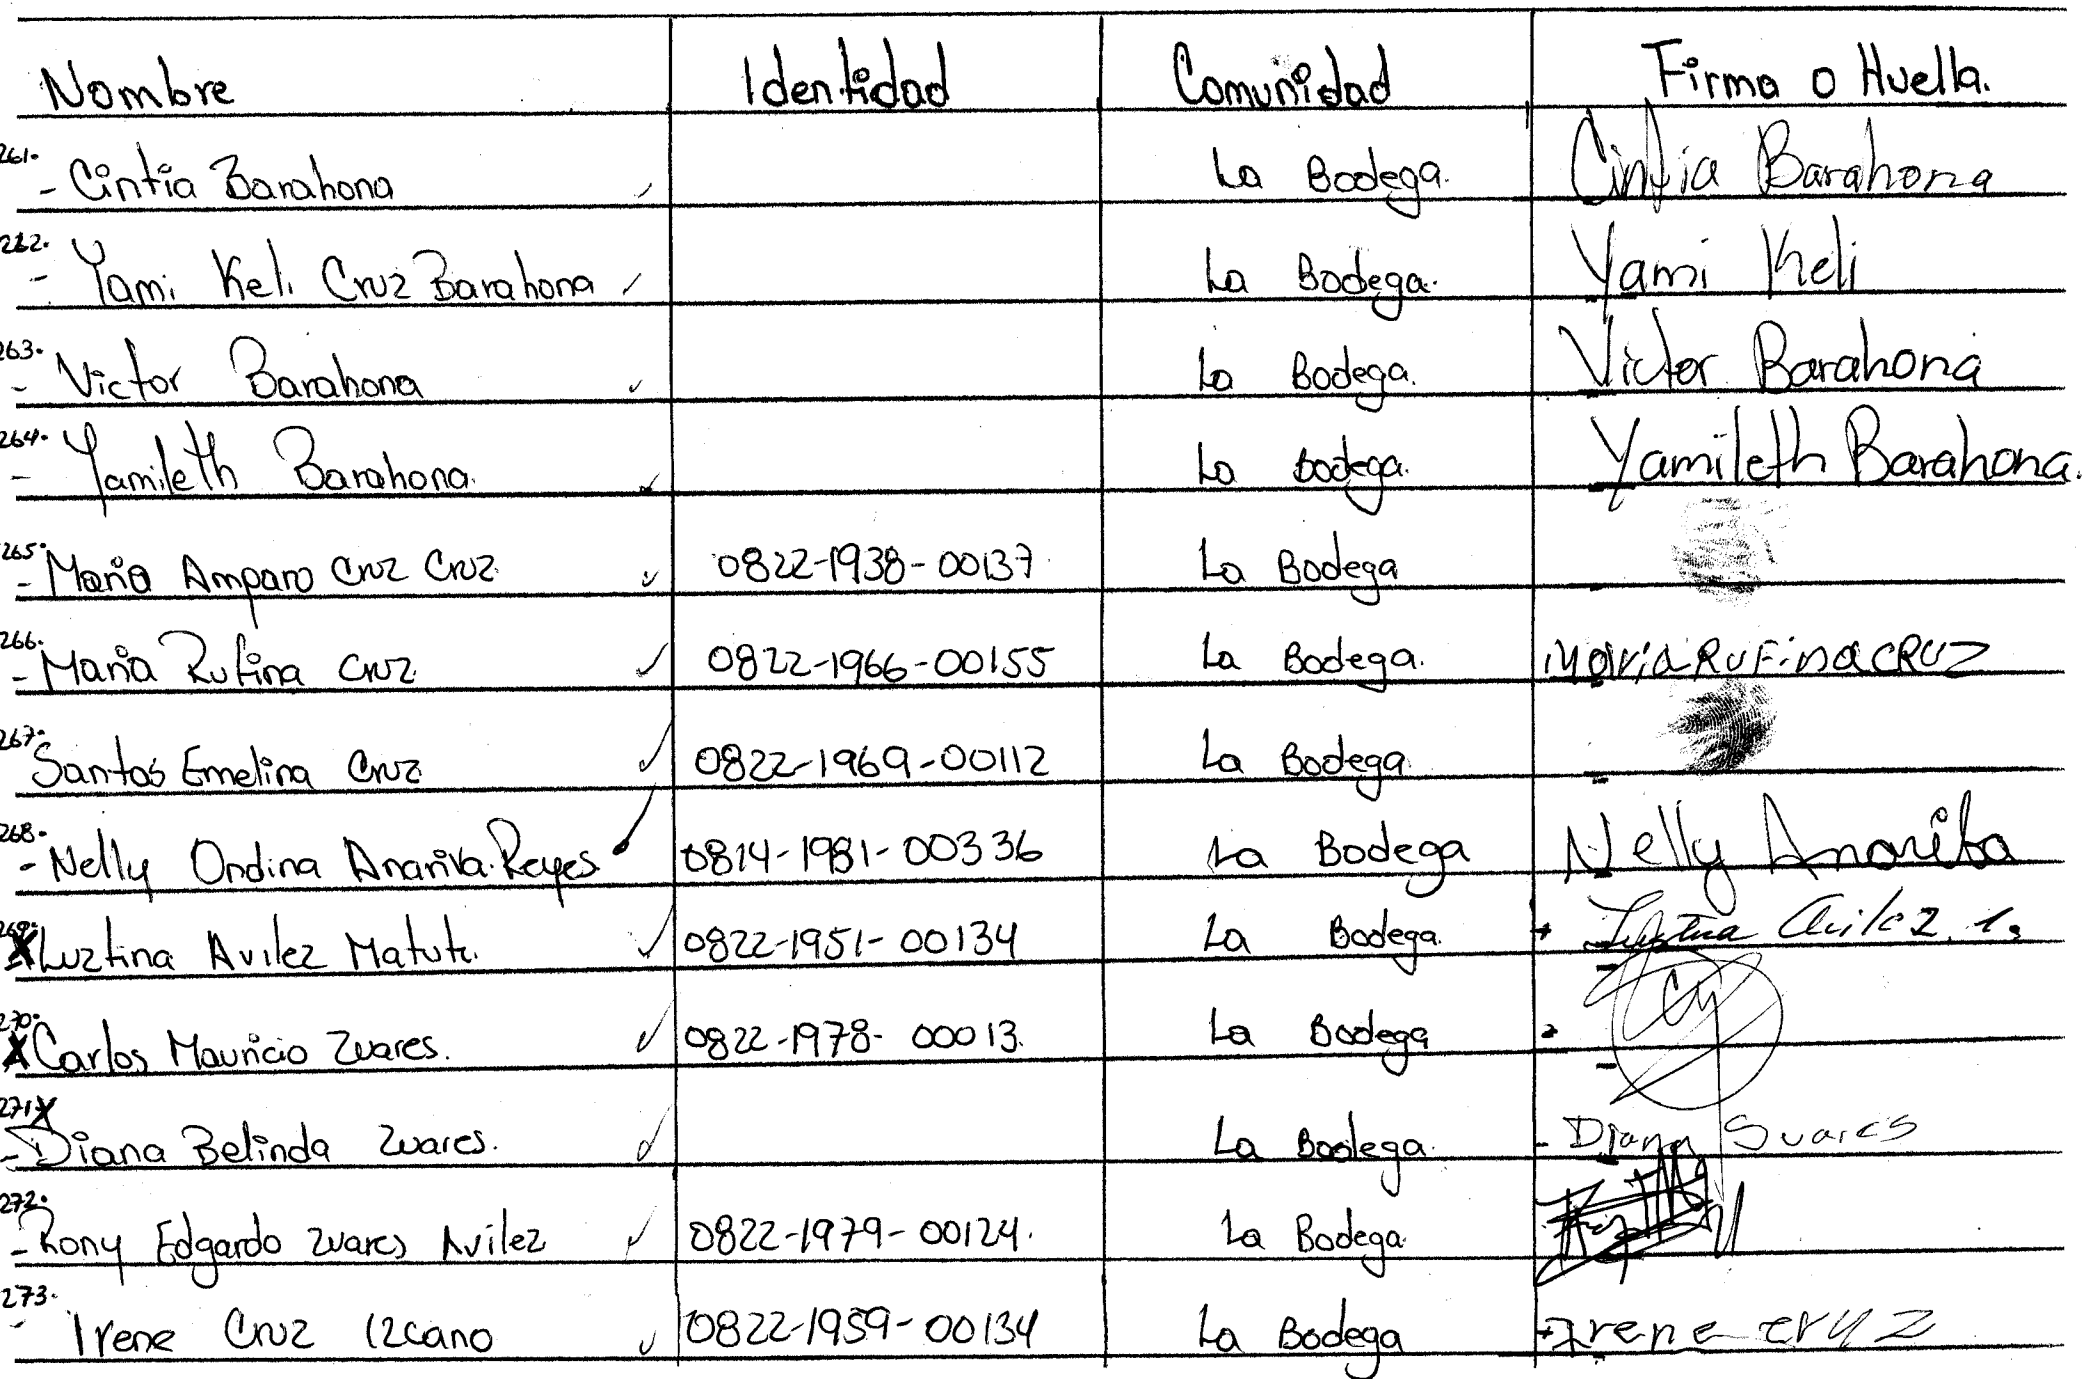 Nombre Identidad Comunidad Firma o Huella.
261. - Cintia Barahona ✓ La Bodega. Cintia Barahona
262. - Yami Keli Cruz Barahona ✓ La Bodega. Yami Keli
263. - Victor Barahona ✓ La Bodega. Victor Barahona
264. - Yamileth Barahona. ✓ La Bodega. Yamileth Barahona.
265. - Maria Amparo Cruz Cruz ✓ 0822-1938-00137 La Bodega
266. - Maria Rufina Cruz ✓ 0822-1966-00155 La Bodega. Maria RuFina CRUZ
267. Santos Emelina Cruz ✓ 0822-1969-00112 La Bodega
268. - Nelly Ondina Anariba Reyes ✓ 0814-1981-00336 La Bodega Nelly Anariba
269. X Luztina Avilez Matute. ✓ 0822-1951-00134 La Bodega. Avilez
270. X Carlos Mauricio Zuares. ✓ 0822-1978-00013. La Bodega
271. X - Diana Belinda Zuares. ✓ La Bodega. - Diana Suares
272. - Rony Edgardo Zuares Avilez ✓ 0822-1979-00124. La Bodega
273. - Irene Cruz Izcano ✓ 0822-1959-00134 La Bodega Irene cruz